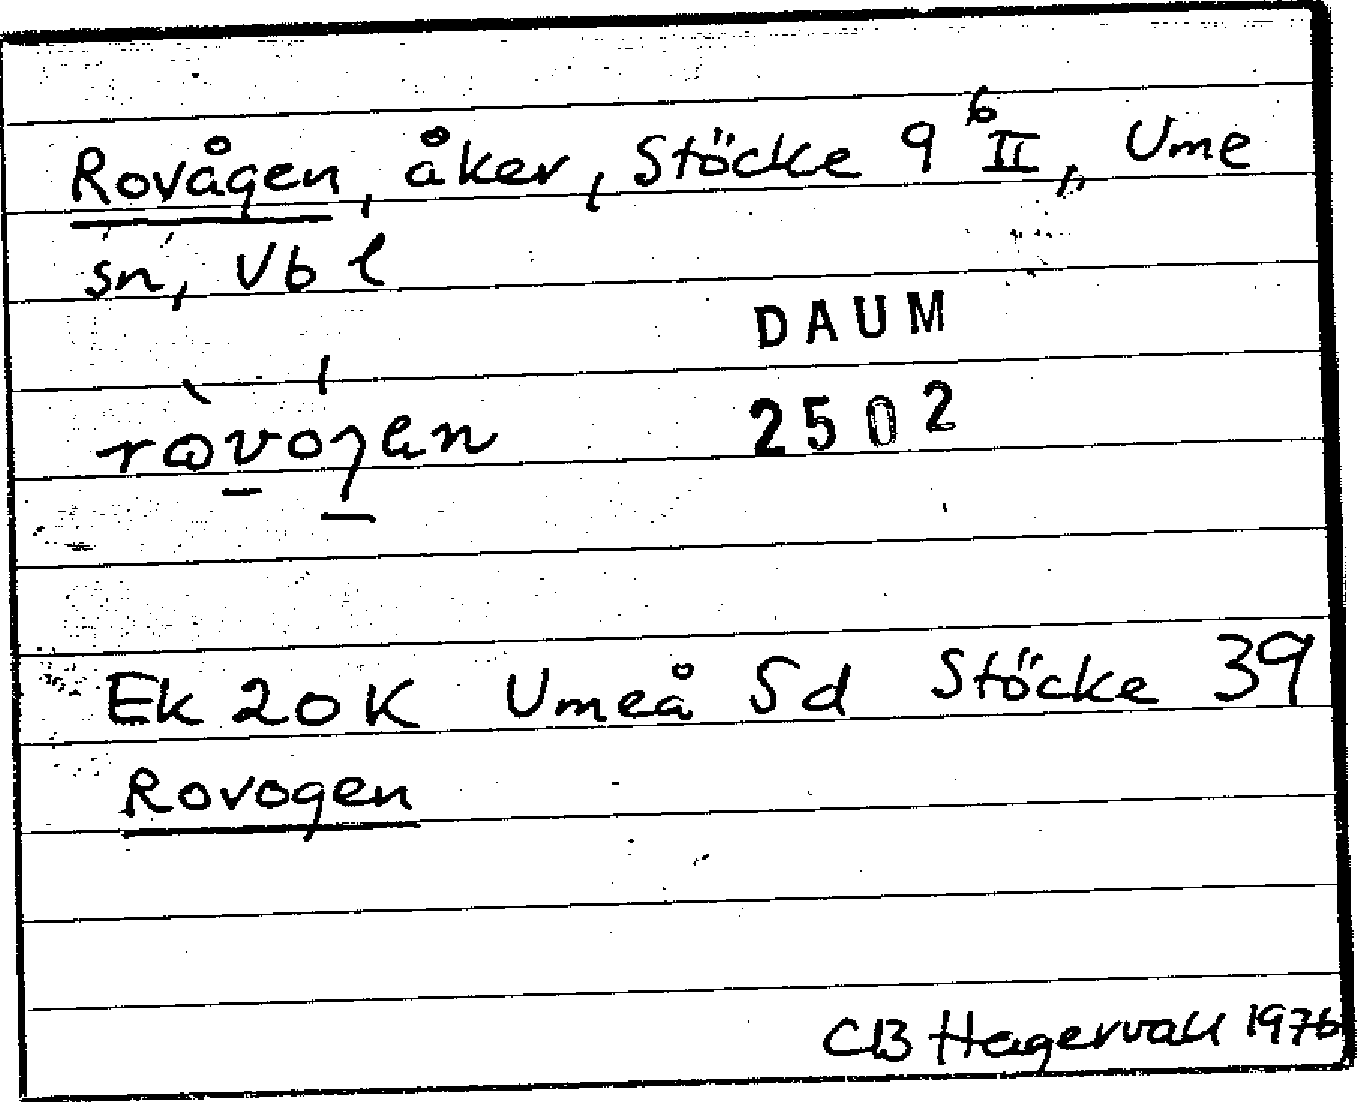 Rovågen, åker, Stöcke 9⁶ II, Ume
sn, Vb l
DAUM
2502
Ek 20 K Umeå Sd Stöcke 39
Rovogen
CB Hagervall 1976